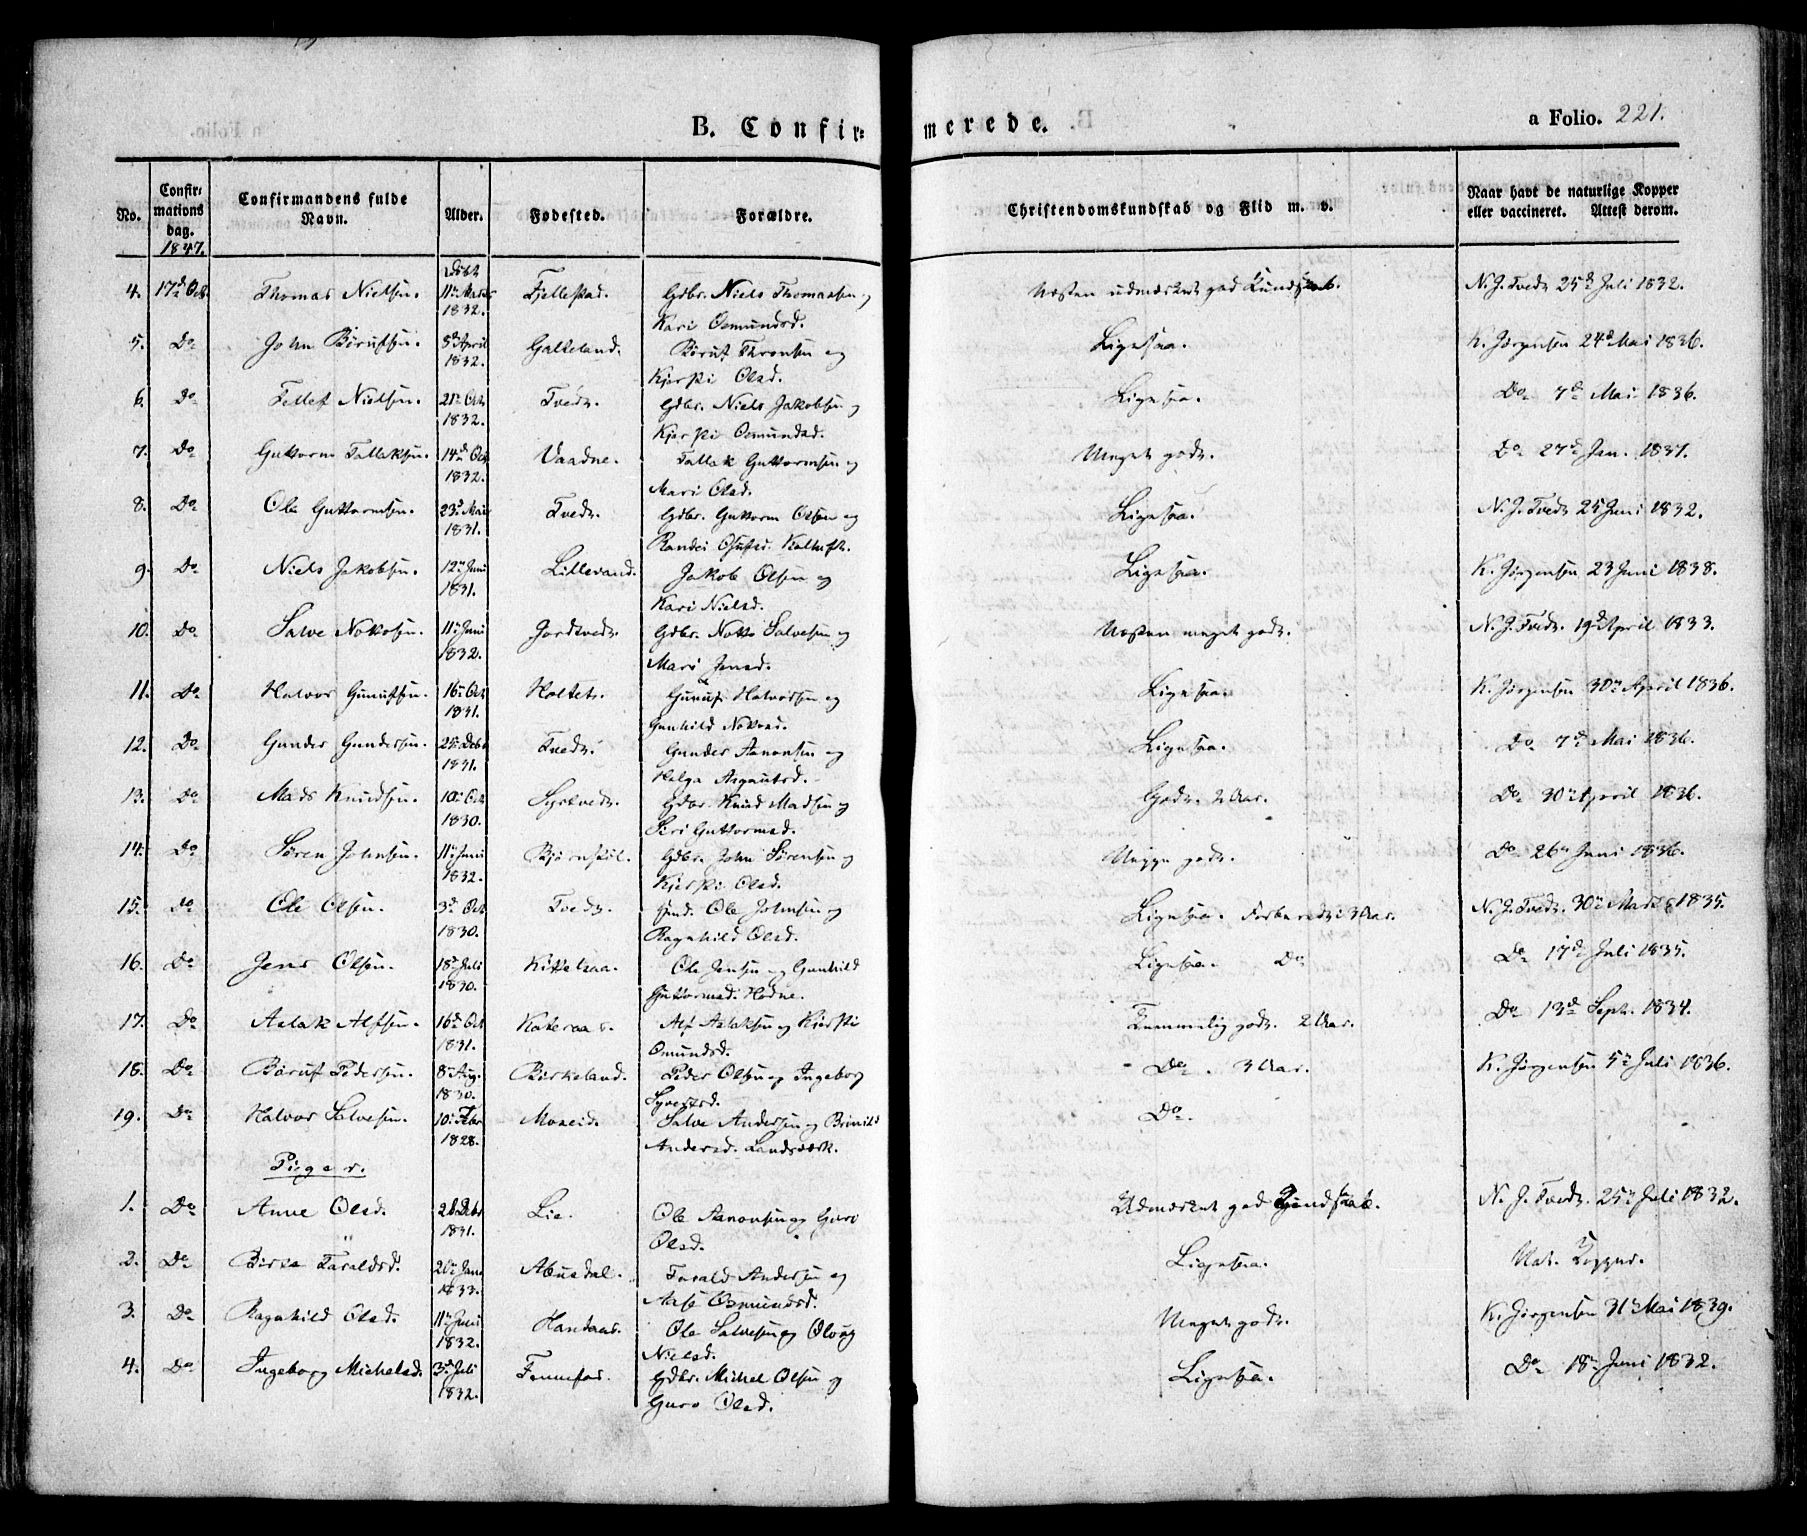 B. Confir=merede. a Folio. 221.
No. Confir=mations dag. 1847. Confirmandens fulde Navn. Alder. Fødested. Forældre. Christendomskundskab og Flid m. v. Naar havt de naturlige Kopper eller vaccineret. Attest derom.
Døbt
4. 17de Oct. Thomas Nielsen. 11te Marts Fjellestad. Gdbr. Niels Thomassen og Næsten udmærket god Kundskab. N. J. Tvedt 25de Juli 1832.
1832. Kari Osmundsd.
5. Do John Børufsen. 8de April Galteland. Børuf Thronsen og Ligesaa. K. Jørgensen 24de Mai 1836.
1832. Kjersti Olsd.
6. Do Tellef Nielsen. 21de Oct. Tvedt. Gdbr. Niels Jakobsen og Ligesaa. Do 7de Mai 1836.
1832. Kjersti Osmundsd.
7. Do Guttorm Tallaksen. 14de Oct. Vaadne. Tallak Guttormsen og Meget godt. Do 27de Jan. 1837.
1832. Mari Olsd.
8. Do Ole Guttormsen. 23de Mai Tvedt. Gdbr. Guttorm Olsen og Ligesaa. N. J. Tvedt 25 Juni 1832.
1831. Randei
9. Do Niels Jakobsen. 12te Juni Lillevand. Jakob Olsen og Ligesaa. K. Jørgensen 23 Juni 1838.
1831. Kari Nielsd.
10. Do Salve Nottosen. 11te Juni Jordtvedt. Gdbr. Notto Salvesen og Næsten meget godt. N. J. Tvedt. 19de April 1833.
1832. Mari Jensd.
11. Do Halvor Gunufsen. 16de Oct. Holtet. Gunuf Halvorsen og Ligesaa. K. Jørgensen 30te April 1836.
1831. Gunhild
12. Do Gunder Gundersen. 25de Debr. Tvedt. Gunder Aanonsen og Ligesaa. Do 7de Mai 1836.
1831. Helga Asgautsd.
13. Do Mads Knudsen. 10de Oct. Syrtvedt. Gdbr. Knud Madsen og Godt. 2 Aar. Do 30te April 1836.
1830. Siri Guttormsd.
14. Do Søren Johnsen. 11te Juni Bjørnstøl. Gdbr. John Sørensen og godt. Do 26de Juni 1836.
1832. Kjersti Olsd.
15. Do Ole Olsen. 3de Oct. Tvedt. Ole Johnsen og Ligesaa. Forberedt i 3 Aar. N. J. Tvedt. 30te Marts 1835.
1830. Ragnhild Olsd.
16. Do Jens Olsen. 18de Juli Kittelsaa. Ole Jensen og Gunhild Ligesaa. Do Do 17de Juli 1835.
1830. Guttormsd. Hodne.
17. Do Aslak Alfsen. 16de Oct. Kateraas. Alf Aslaksen og Kjersti Temmelig godt. 2 Aar. Do 13de Sept. 1834.
1831. Omundsd.
18. Do Børuf Pedersen. 8de Aug. Birkeland. Peder Olsen og Ingeborg Do. 3 Aar. K. Jørgensen 5te Juli 1836.
1830. Syvertsd.
19. Do Halvor Salvesen. 10de Febr. Moseid. Salve Andersen og Brinild Do.
1828. Andersd. Landsværk.
Piger.
1. Do Anne Olsd. 26 Debr. Lie. Ole Aanonsen og Guro Udmærket god Kundskab. N. J. Tvedt. 25de Juli 1832.
1831. Olsd.
2. Do Birte Taraldsd. 20de Janr. Abusdal. Tarald Andersen og Ligesaa. Nat. Kopper.
1833. Aase Osmundsd.
3. Do Ragnhild Olsd. 11te Juni Hantaas. Ole Salvesen og Olvug Meget godt. K. Jørgensen 31te Mai 1839.
1832. Nielsd.
4. Do Ingeborg Michelsd. 3de Juli Fennefos. Gdbr. Michel Olsen og Ligesaa. Do 18de Juni 1832.
1832. Guro Olsd.